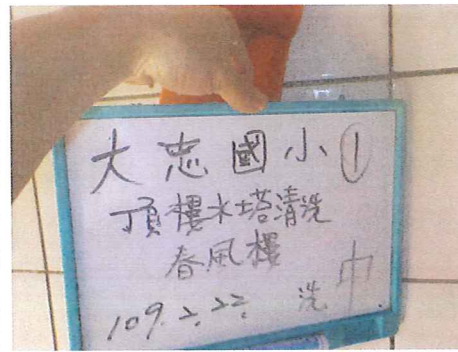 大忠國小①
頂樓水塔清洗
春風樓
109.2.22. 洗中